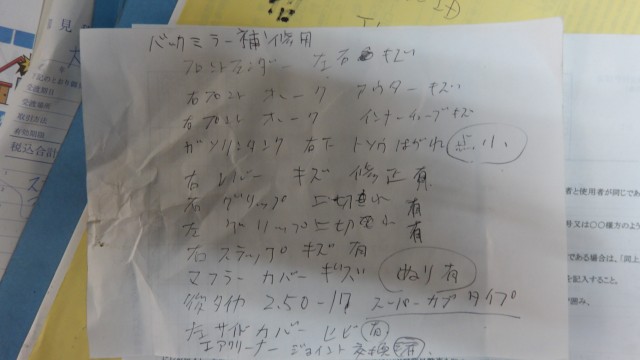 バックミラー補修用
フロントフェンダー 左右 キズ
右フロント ホーク アウターキズ
右フロント ホーク インナーチューブキズ
ガソリンタンク 右下 トソウはがれ 点小
右 レバー キズ 修正 有
右 グリップ 切れ 有
左 グリップ 切れ 有
右 ステップ キズ 有
マフラー カバー キズ ぬり有
後タイヤ 2.50-17 スーパーカブタイプ
左サイドカバー ヒビ 有
エアクリーナー ジョイント 交換 有
見
受渡期日
受渡場所
取引方法
有効期限
税込合計
者と使用者が同じであ
号又は〇〇様方のよう
である場合は、「同上
を記入すること。